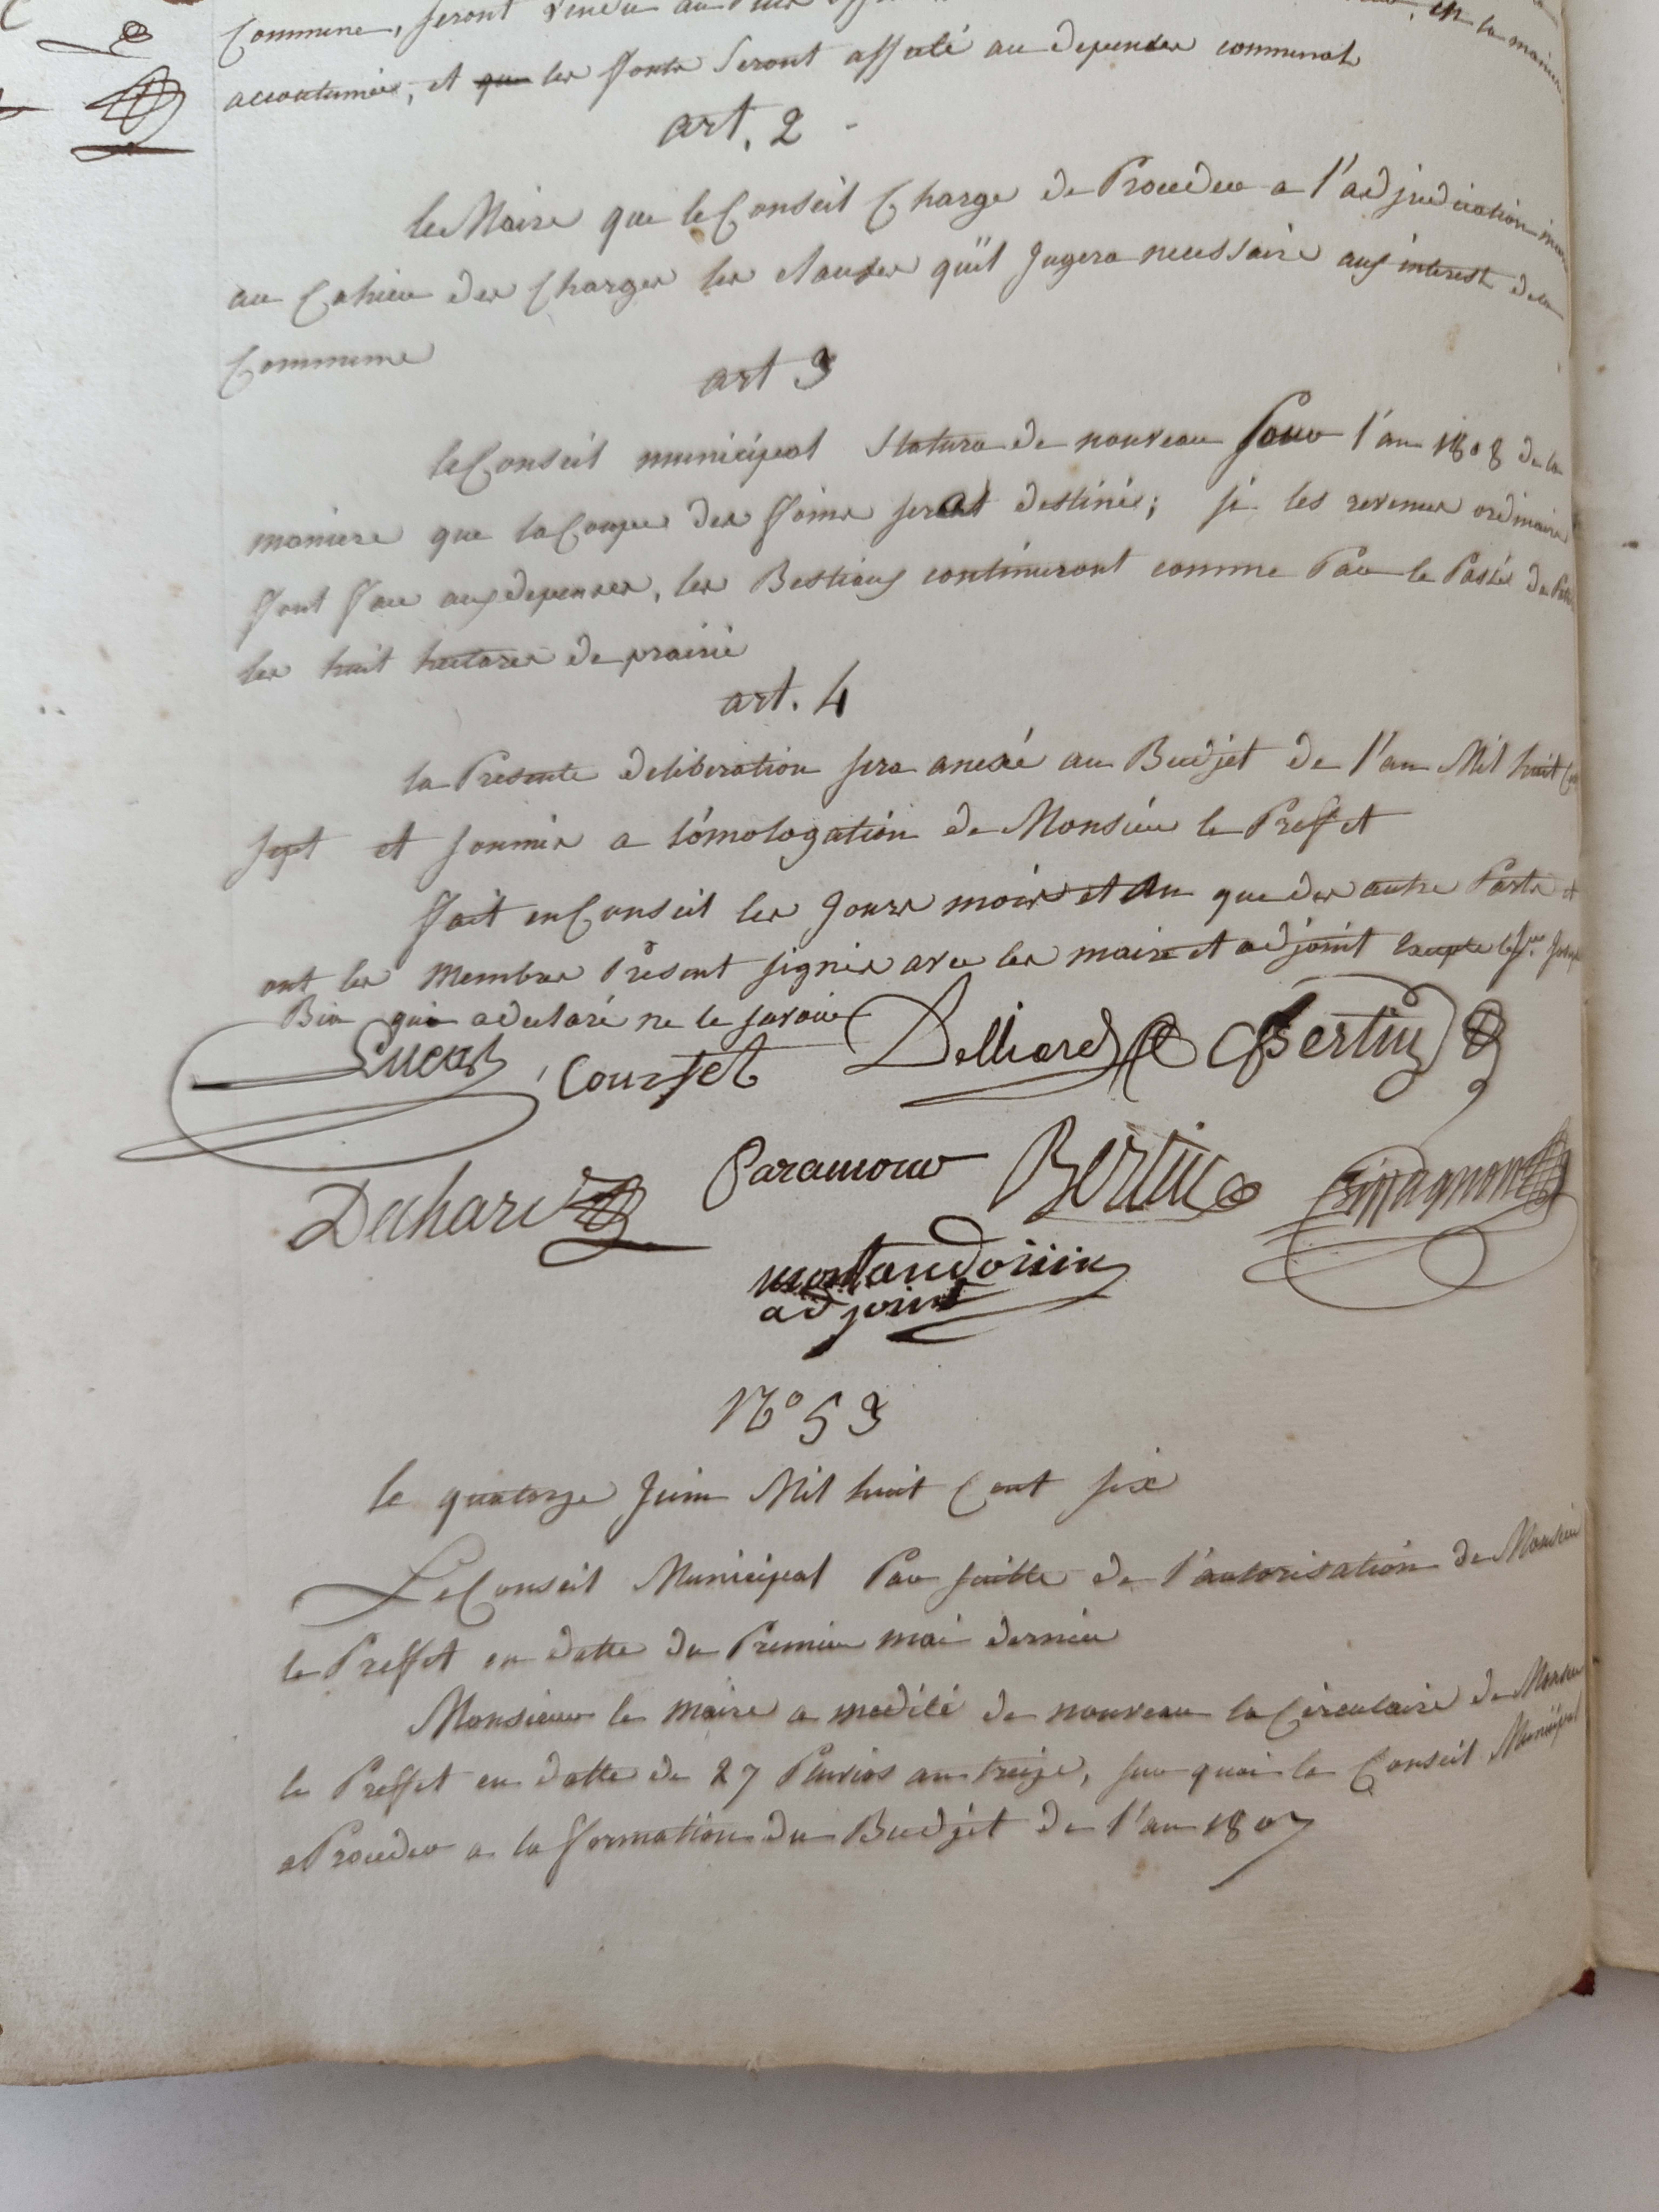 Commune, seront vendu au plus
accoutumée, et que les fonds seront affecté au depenses communal
art. 2
le Maire que le Conseil Charge de Proceder a l'adjudication
au Cahier des Charges les clauses qu'il Jugera necessaire aux interest de la
Commune
art 3
le Conseil municipal Statura de nouveau Pour l'an 1808 de la
maniere que la Coupe des foins serat destinée; si les revenus ordinaire
font face aux depenses, les Bestiaux continuront comme Par le Passée de
les huit hectares de prairie
art. 4
la Presente deliberation sera anexé au Budjet de l'an Mil huit
sept et soumis a lómologation de Monsieur le Preffet
fait en Conseil les Jours mois et An que des autre Parts et
ont les Membres Présent signés avec les maire et adjoint Excepte le Sr.
Bia qui a declaré ne le savoir
Lucas Courset Delliard Bertin
Duhard Paramour Bertin
montaudouin
adjoint
N° 53
le quatorze Juin Mil huit Cent six
Le Conseil Municipal Par suitte de l'autorisation de Monsieur
le Preffet en datte du Premier mai dernier
Monsieur le maire a medité de nouveau la Circulaire de Monsieur
le Preffet en datte de 27 Pluvios an treize, sur quoi le Conseil Municipal
a Proceder a la formation du Budjet de l'an 1807